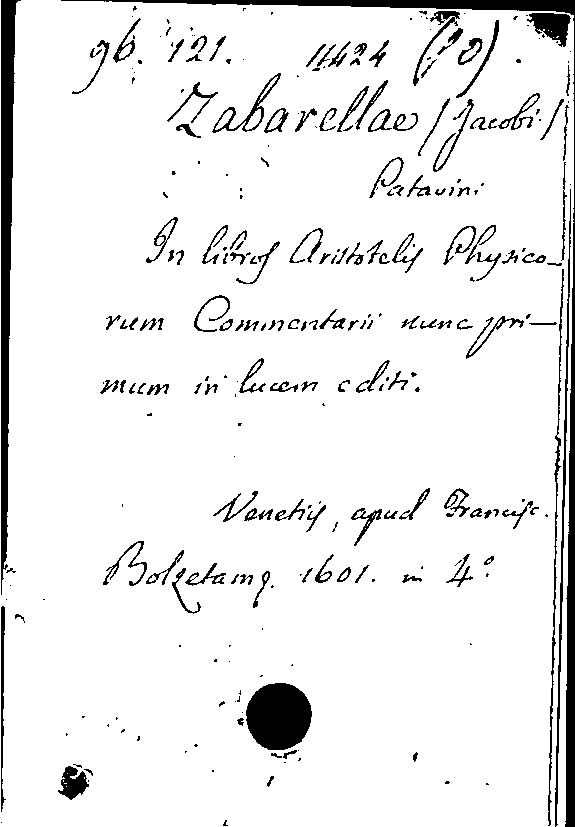 96. 121. 4424 (20).
Zabarellae /Jacobi./
Patavini
In libros Aristotelis Physico-
rum Commentarii nunc pri-
mum in lucem editi.
Venetiis, apud Francisc.
Bolzetamq. 1601. in 4°